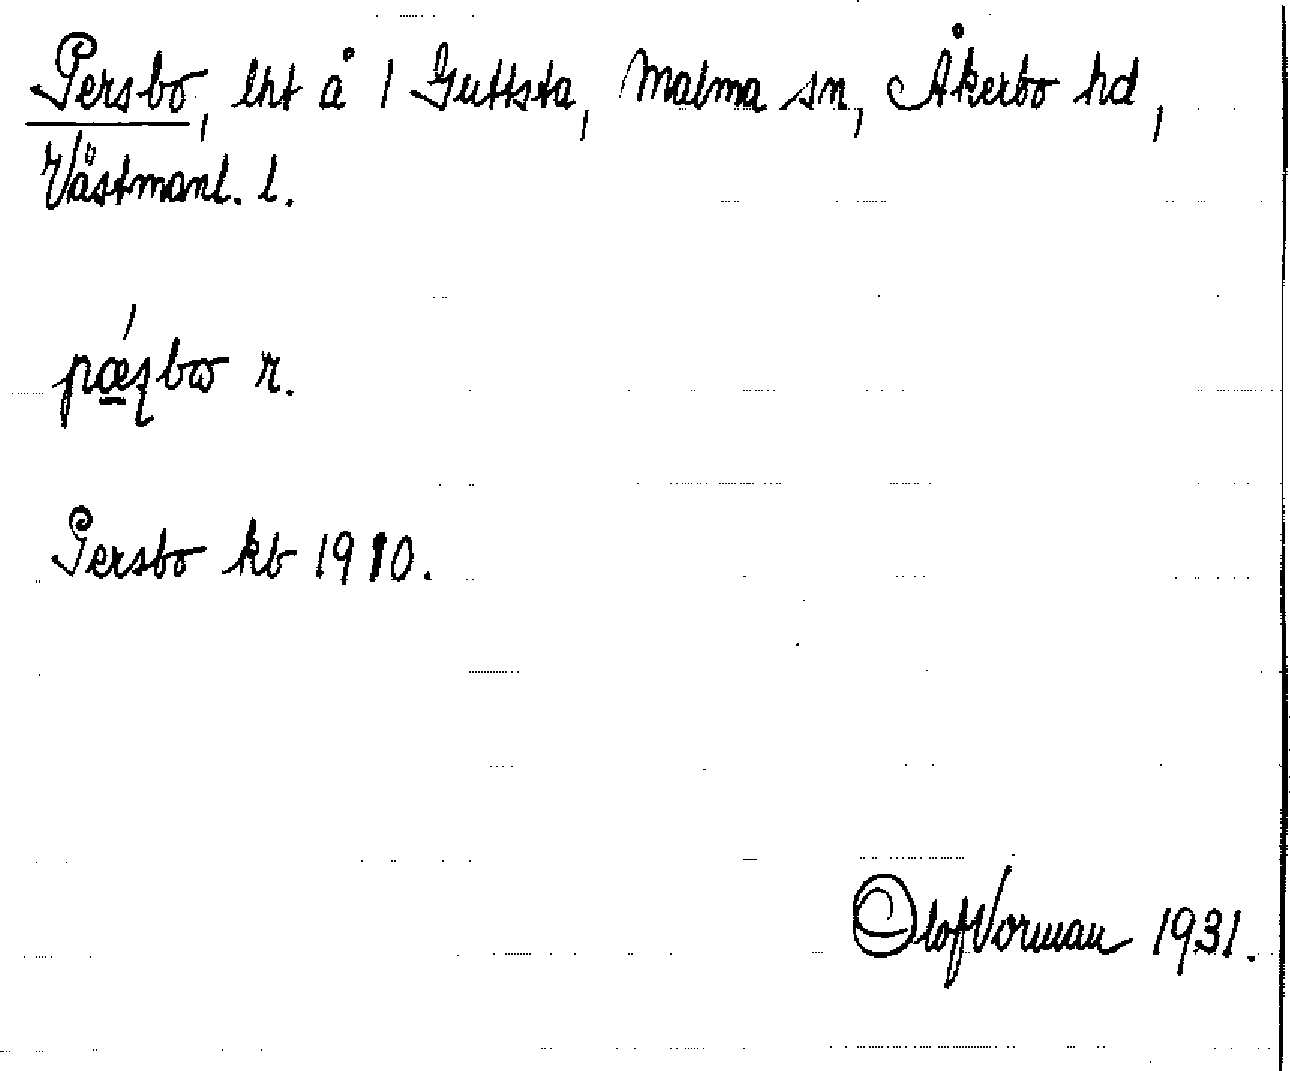 Persbo, lht å 1 Guttsta, Malma sn, Åkerbo hd,
Västmanl. l.
pǽʂbω r.
Persbo kb 1910.
Olof Vorman 1931.